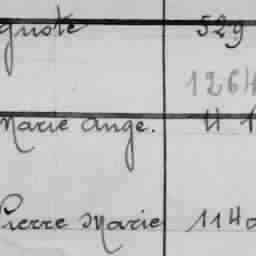 529
1264
Marie Ange. 11 1
Pierre Marie 1140